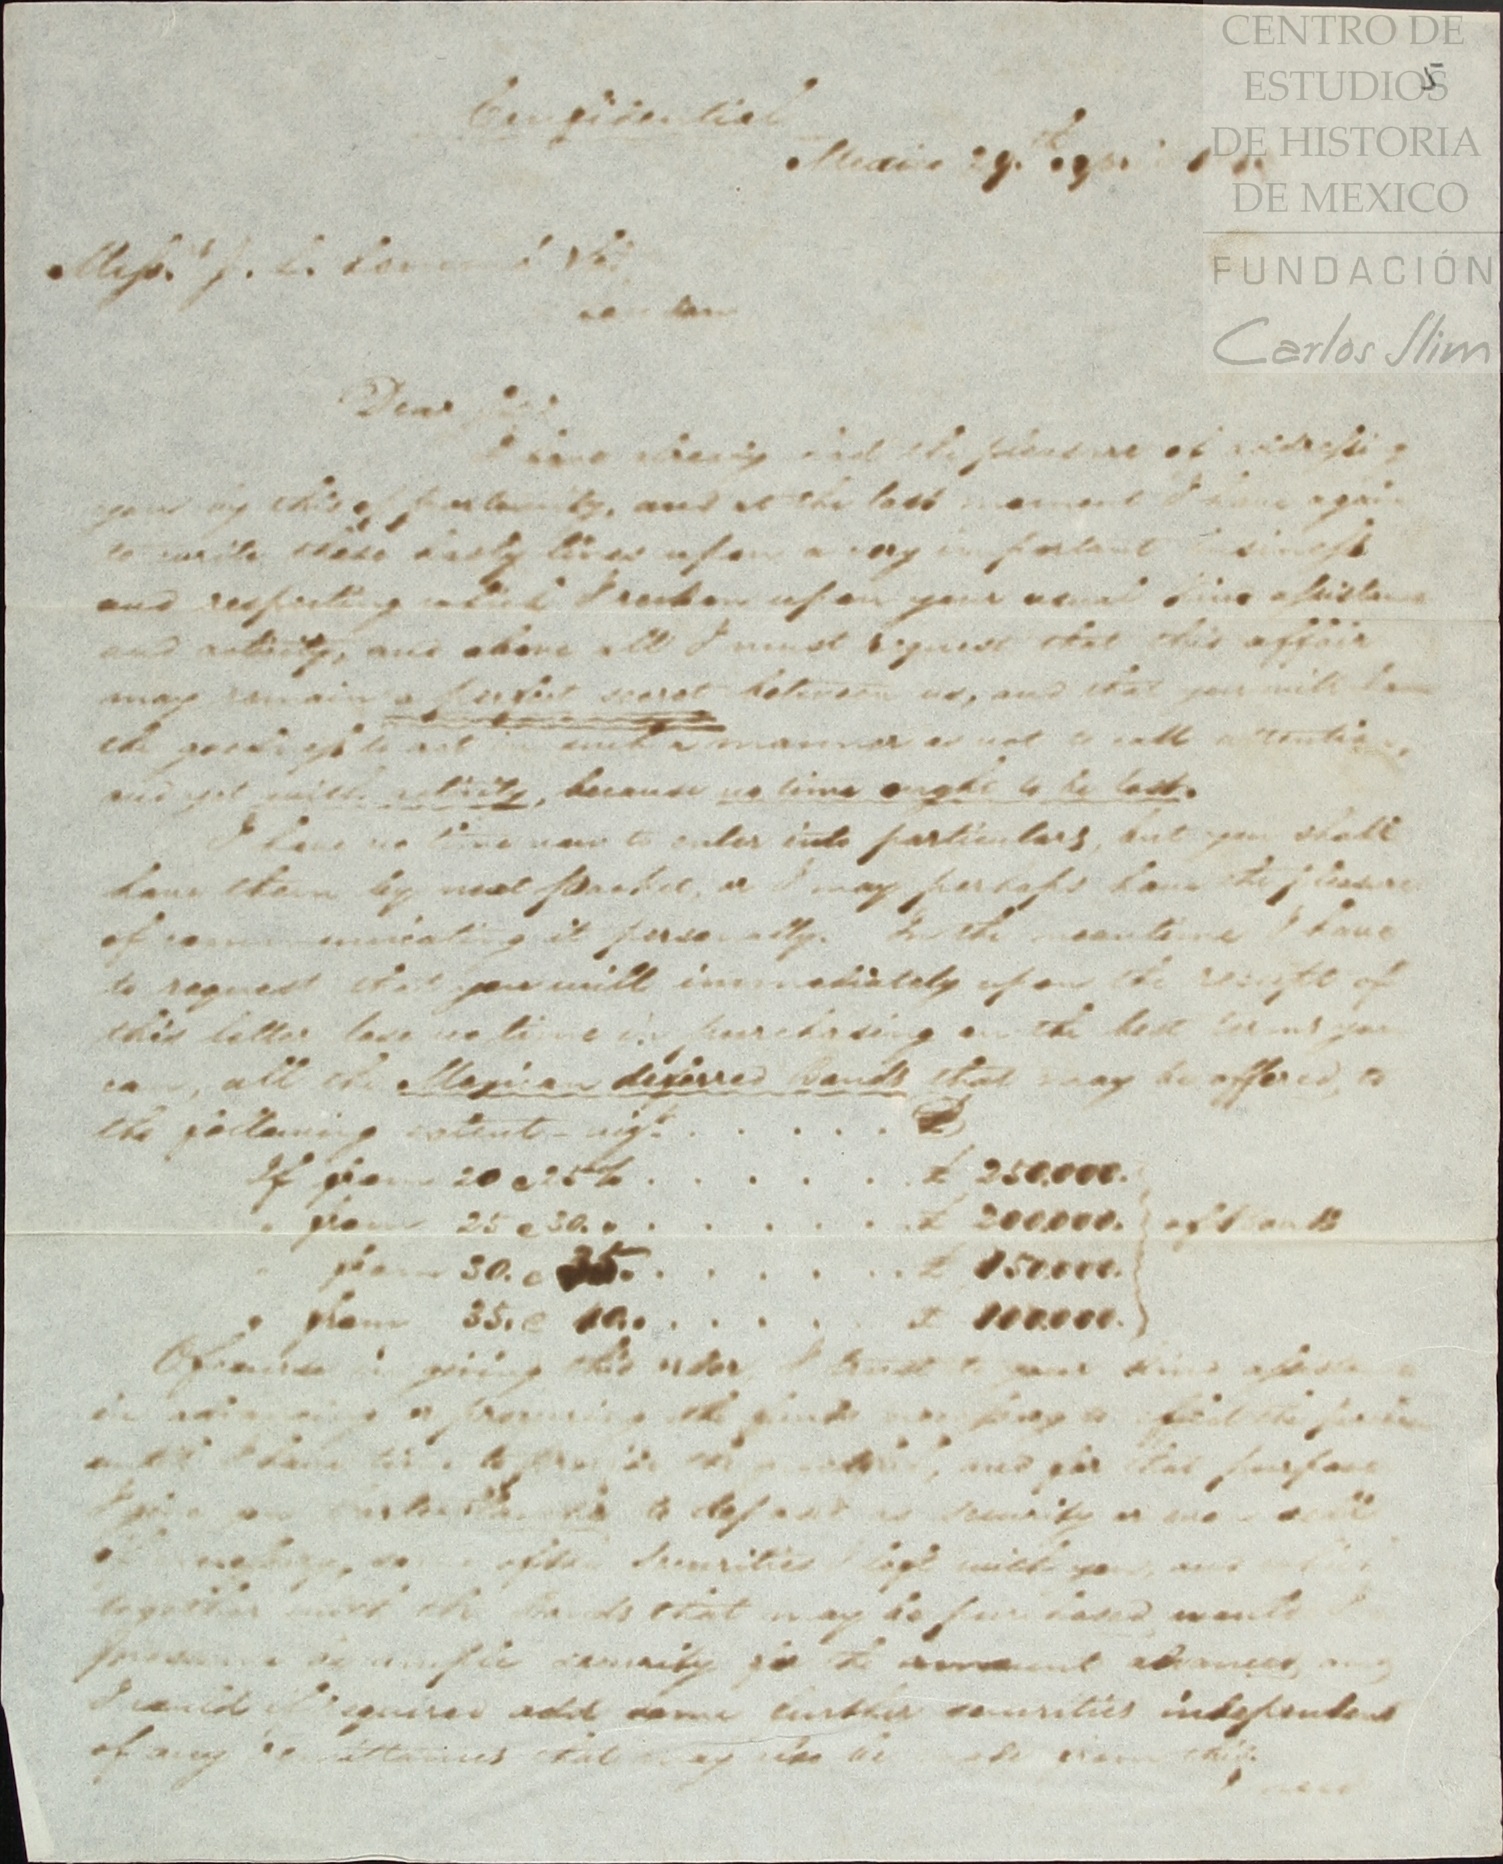 CENTRO DE
ESTUDIOS
DE HISTORIA
DE MEXICO
FUNDACIÓN
Carlos Slim
5
Confidential
Mexico 29th
Messrs J. L.
London
Dear
I have already had the pleasure of addressing
you by this opportunity, and at the last moment I have again
to write these hasty lines upon a very important business
and respecting which I reckon upon your usual kind assistance
and activity, and above all I must request that this affair
may remain a perfect secret between us, and that you will have
the goodness to act in such a manner as not to call attention,
and yet with activity, because no time ought to be lost.
I have no time now to enter into particulars, but you shall
have them by next packet, or I may perhaps have the pleasure
of communicating it personally. In the meantime I have
to request that you will immediately upon the receipt of
this letter lose no time in purchasing on the best terms you
can, all the Mexican deferred bonds that may be offered, to
the following extent - vizt. . . . . . .
If from 20 a 25 % . . . . . . £ 250.000.
" from 25 a 30. " . . . . . £ 200.000. of Bonds
" from 30. a 35. . . . . . . £ 150.000.
" from 35. a 40. " . . . . . £ 100.000.
Of course in giving this order, I trust to your kind assistance
in advancing or procuring the funds necessary to effect the
until I have time to provide the and for that purpose
I give you to deposit as security or even sell
if necessary, some of the Securities I left with you, and which
together with the bonds that may be purchased, would I
presume be ample security for the amount advanced, and
I could if required add some further securities independent
of any remittances that may also be made from this.
I need